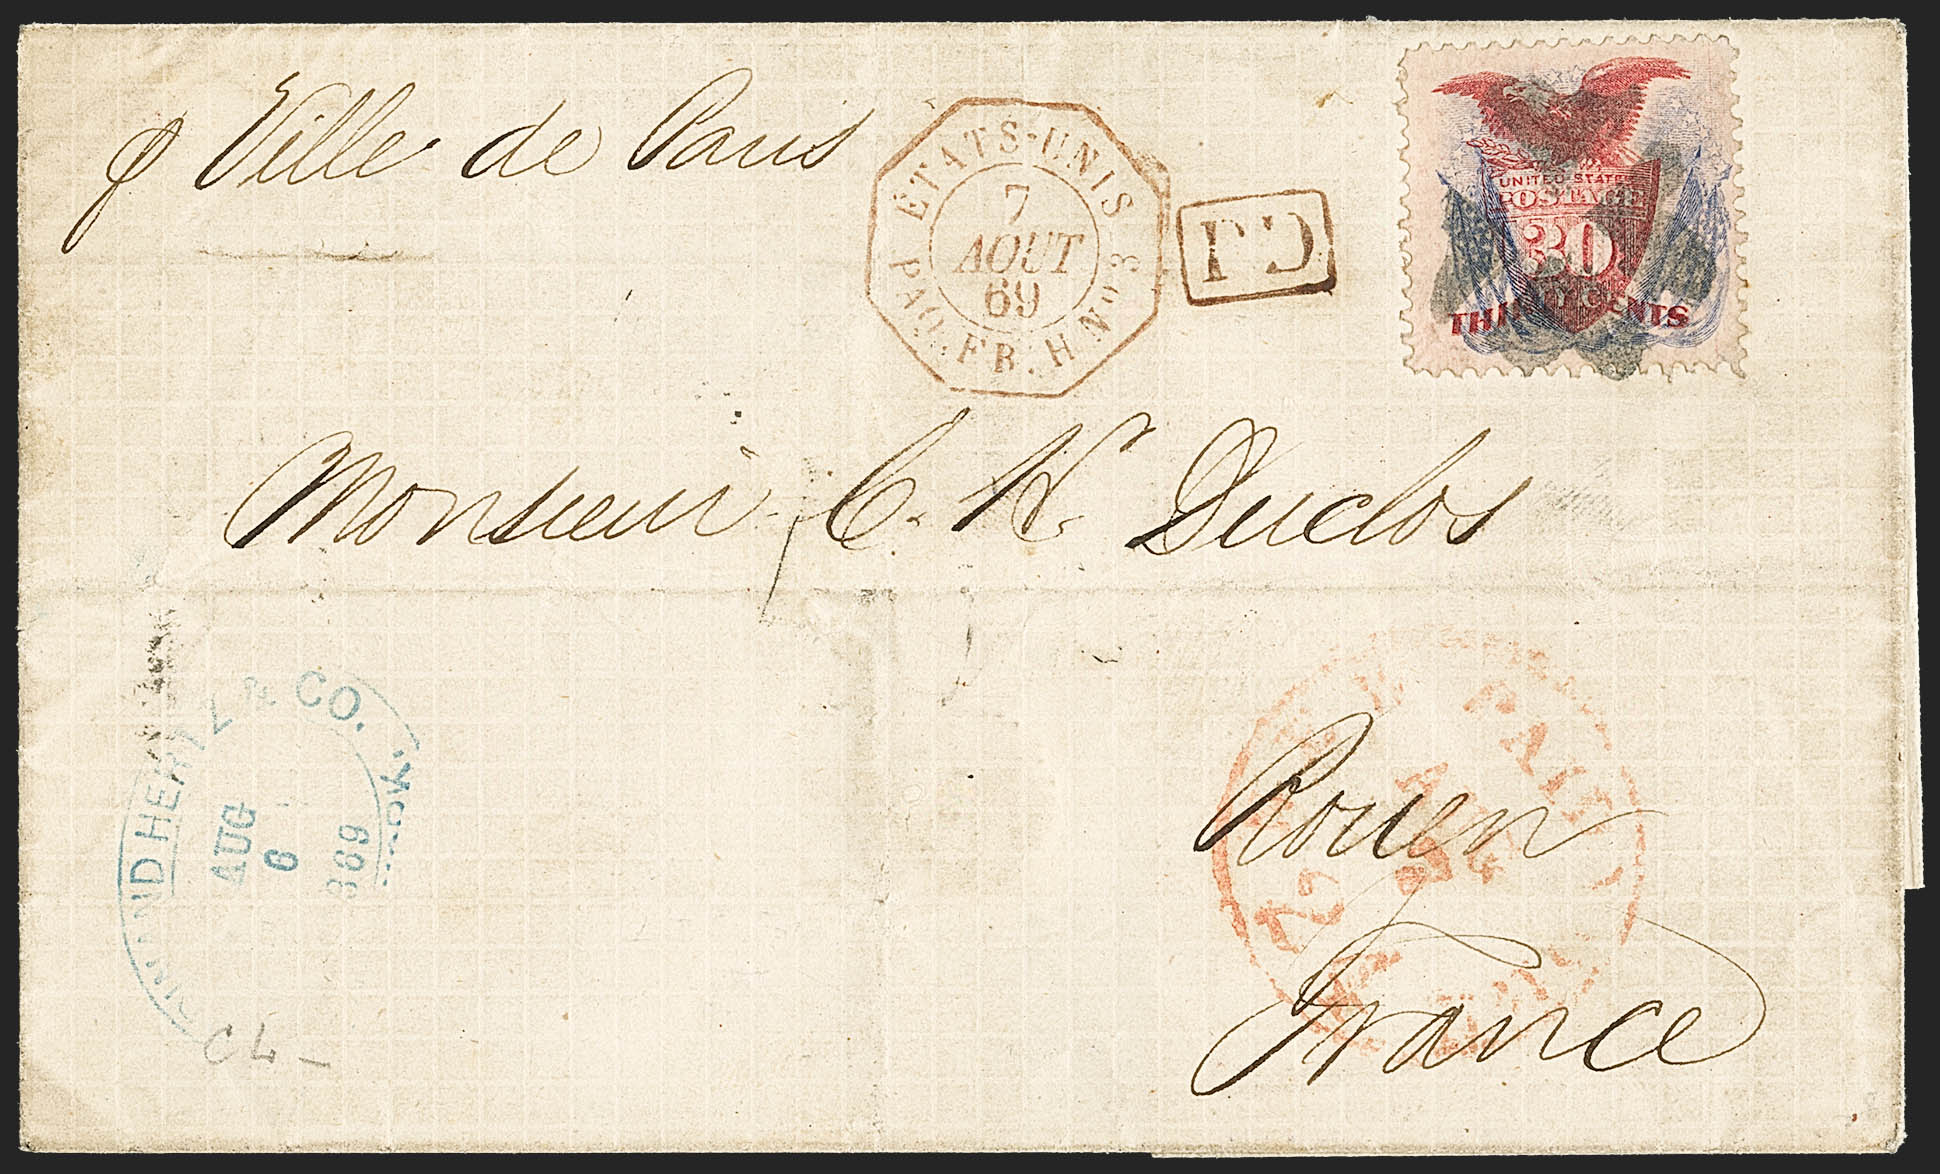 p Ville de Paris
ETATS-UNIS
7
AOUT
69
PAQ. FR. H No 3
PD
UNITED STATES
POSTAGE
30
THIRTY CENTS
Monsieur C. H. Duclos
HERTZ & CO.
AUG
6
869
PAID
12
Rouen
France